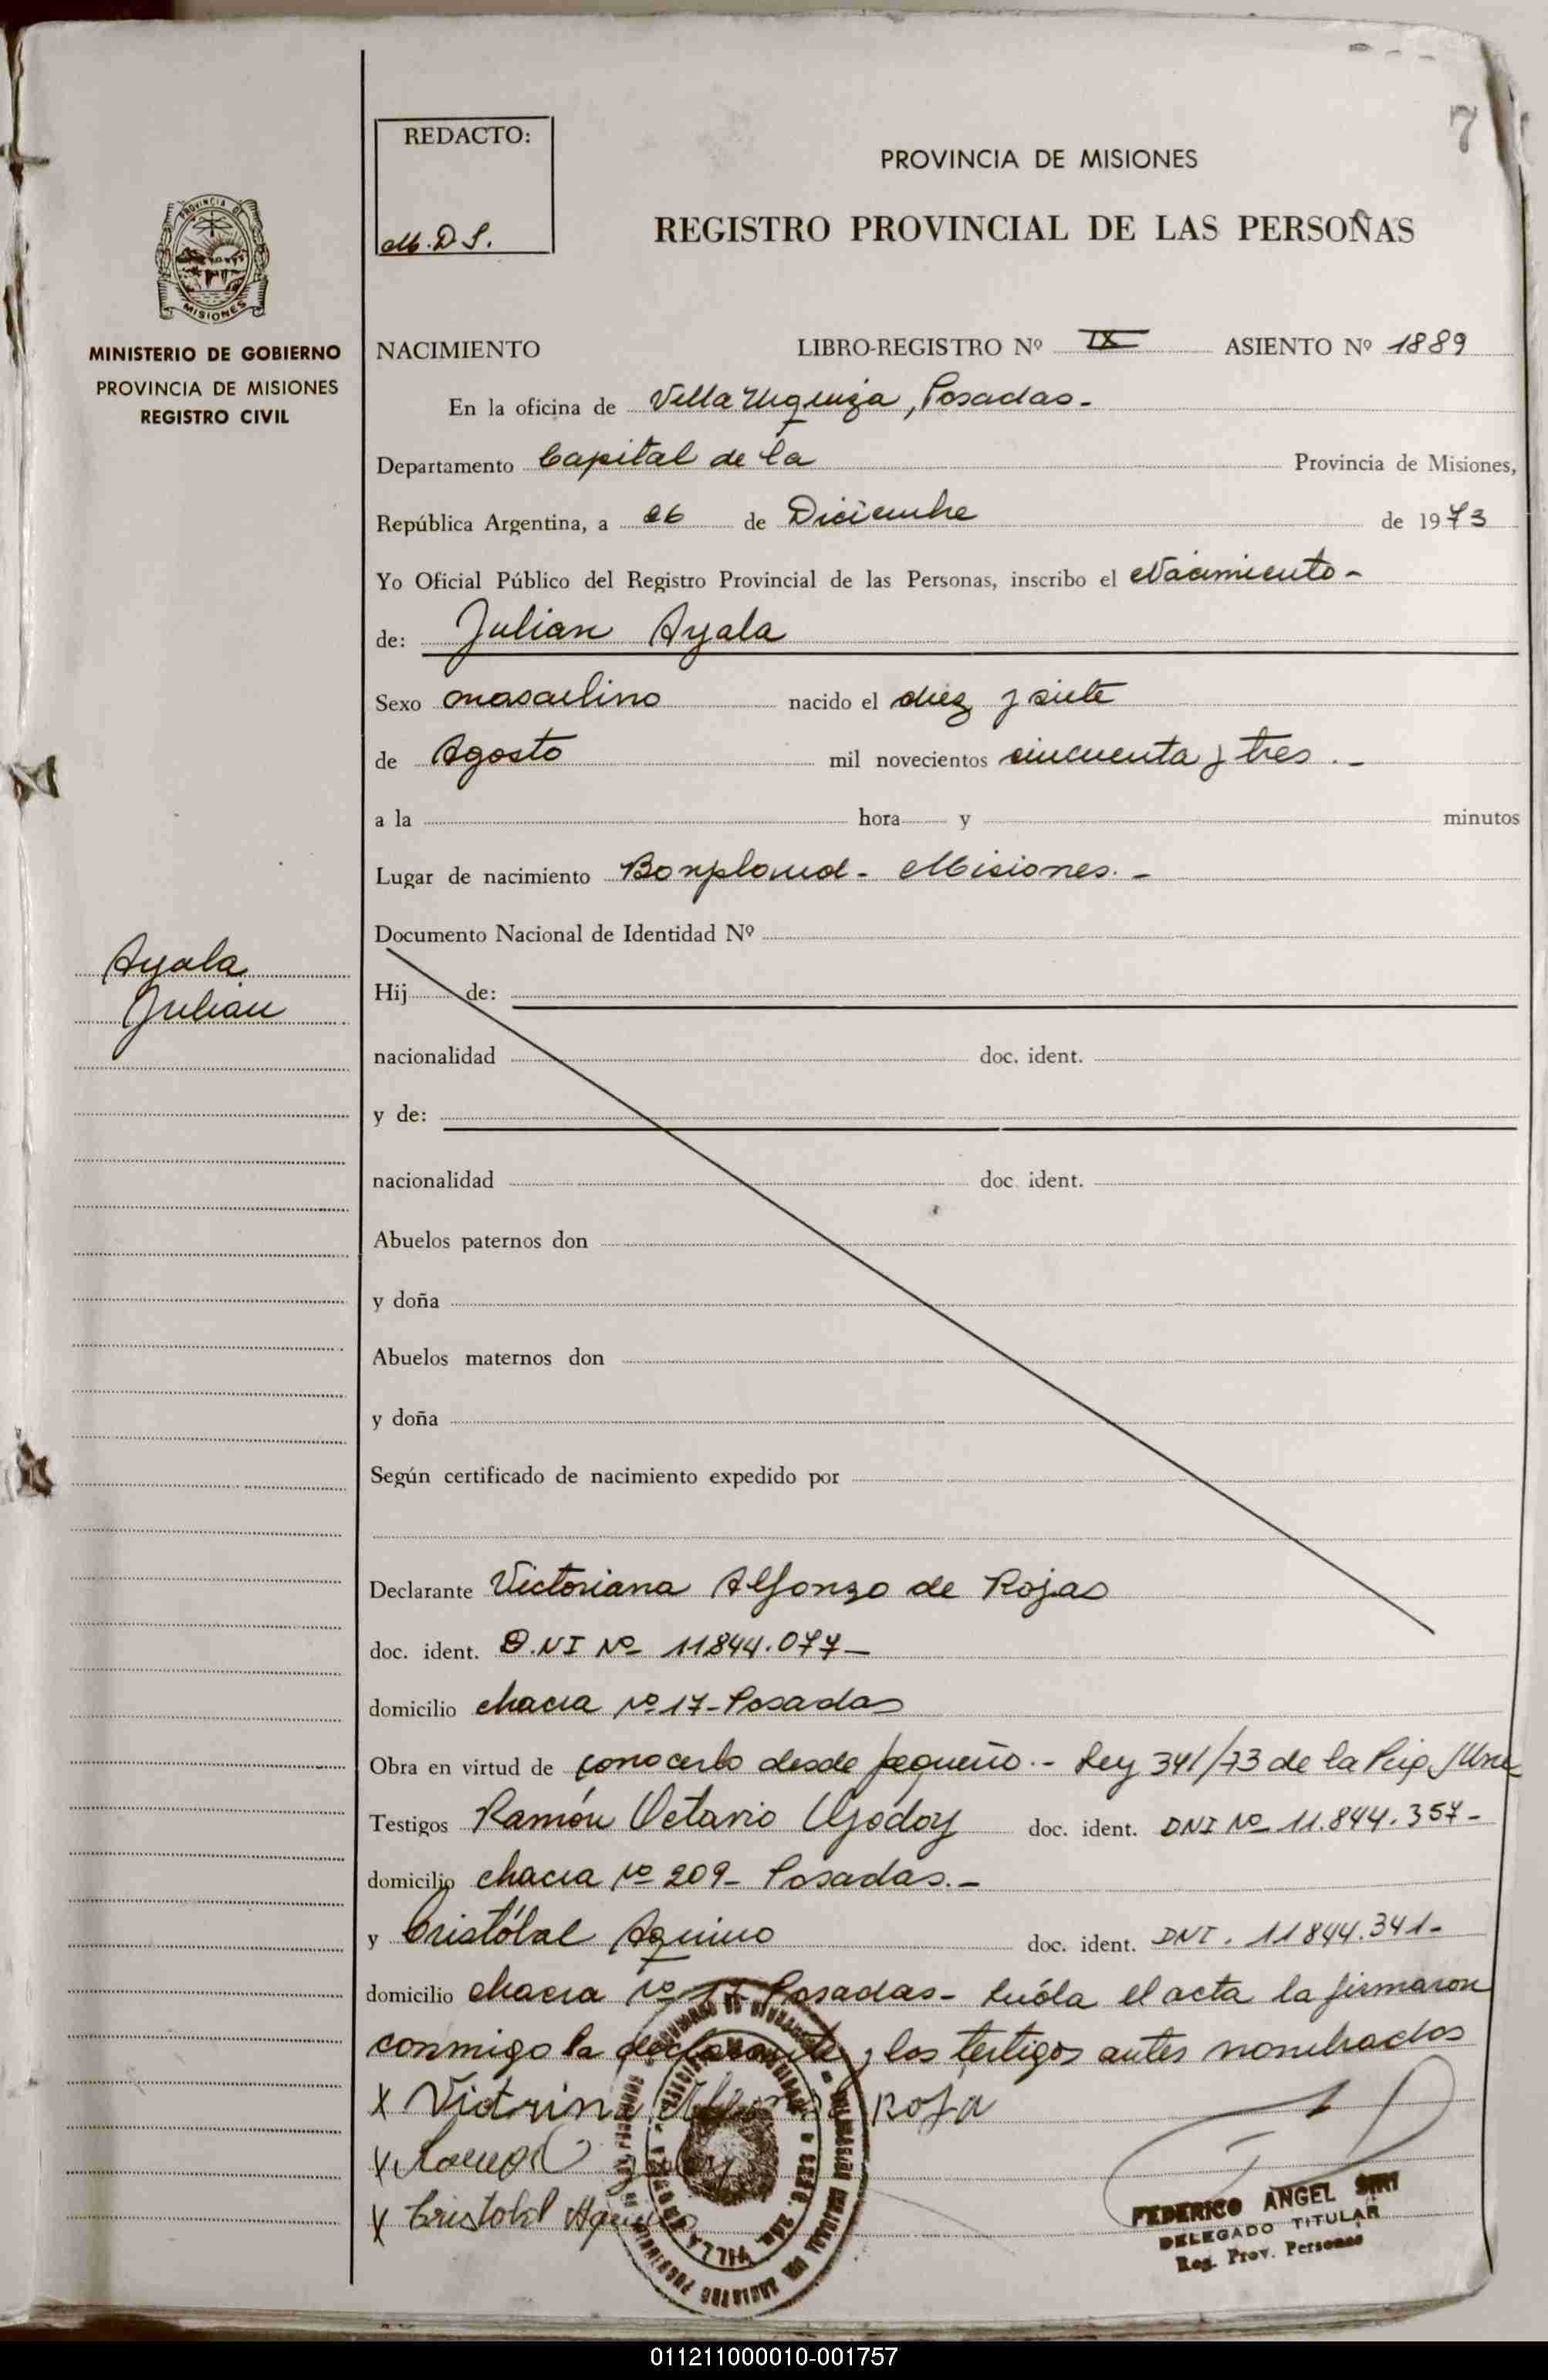 7
REDACTO:
M.D.S.
PROVINCIA DE MISIONES
REGISTRO PROVINCIAL DE LAS PERSONAS
PROVINCIA DE
MISIONES
MINISTERIO DE GOBIERNO
PROVINCIA DE MISIONES
REGISTRO CIVIL
NACIMIENTO LIBRO-REGISTRO Nº IX ASIENTO Nº 1889
En la oficina de Villa Urquiza, Posadas-
Departamento Capital de la Provincia de Misiones,
República Argentina, a 26 de Diciembre de 1973
Yo Oficial Público del Registro Provincial de las Personas, inscribo el Nacimiento-
de: Julian Ayala
Sexo masculino nacido el diez y siete
de Agosto mil novecientos cincuenta y tres.-
a la hora y minutos
Lugar de nacimiento Bonpland- Misiones.-
Documento Nacional de Identidad Nº
Ayala
Julian
Hij de:
nacionalidad doc. ident.
y de:
nacionalidad doc. ident.
Abuelos paternos don
y doña
Abuelos maternos don
y doña
Según certificado de nacimiento expedido por
Declarante Victoriana Alfonzo de Rojas
doc. ident. D.NI Nº 11844.077-
domicilio chacra Nº 17-Posadas
Obra en virtud de conocerlo desde pequeño.- Ley 341/73 de la
Testigos Ramón Octavio Godoy doc. ident. DNI Nº 11.844.357-
domicilio chacra Nº 209- Posadas.-
y Cristóbal Aquino doc. ident. DNI. 11844.341-
domicilio chacra Nº 17 Posadas- leíola el acta la firmaron
conmigo la declarante y los testigos antes nombrados
X Roja
X
X Cristobl
FEDERICO ANGEL SIRI
DELEGADO TITULAR
Reg. Prov. Personas
011211000010-001757